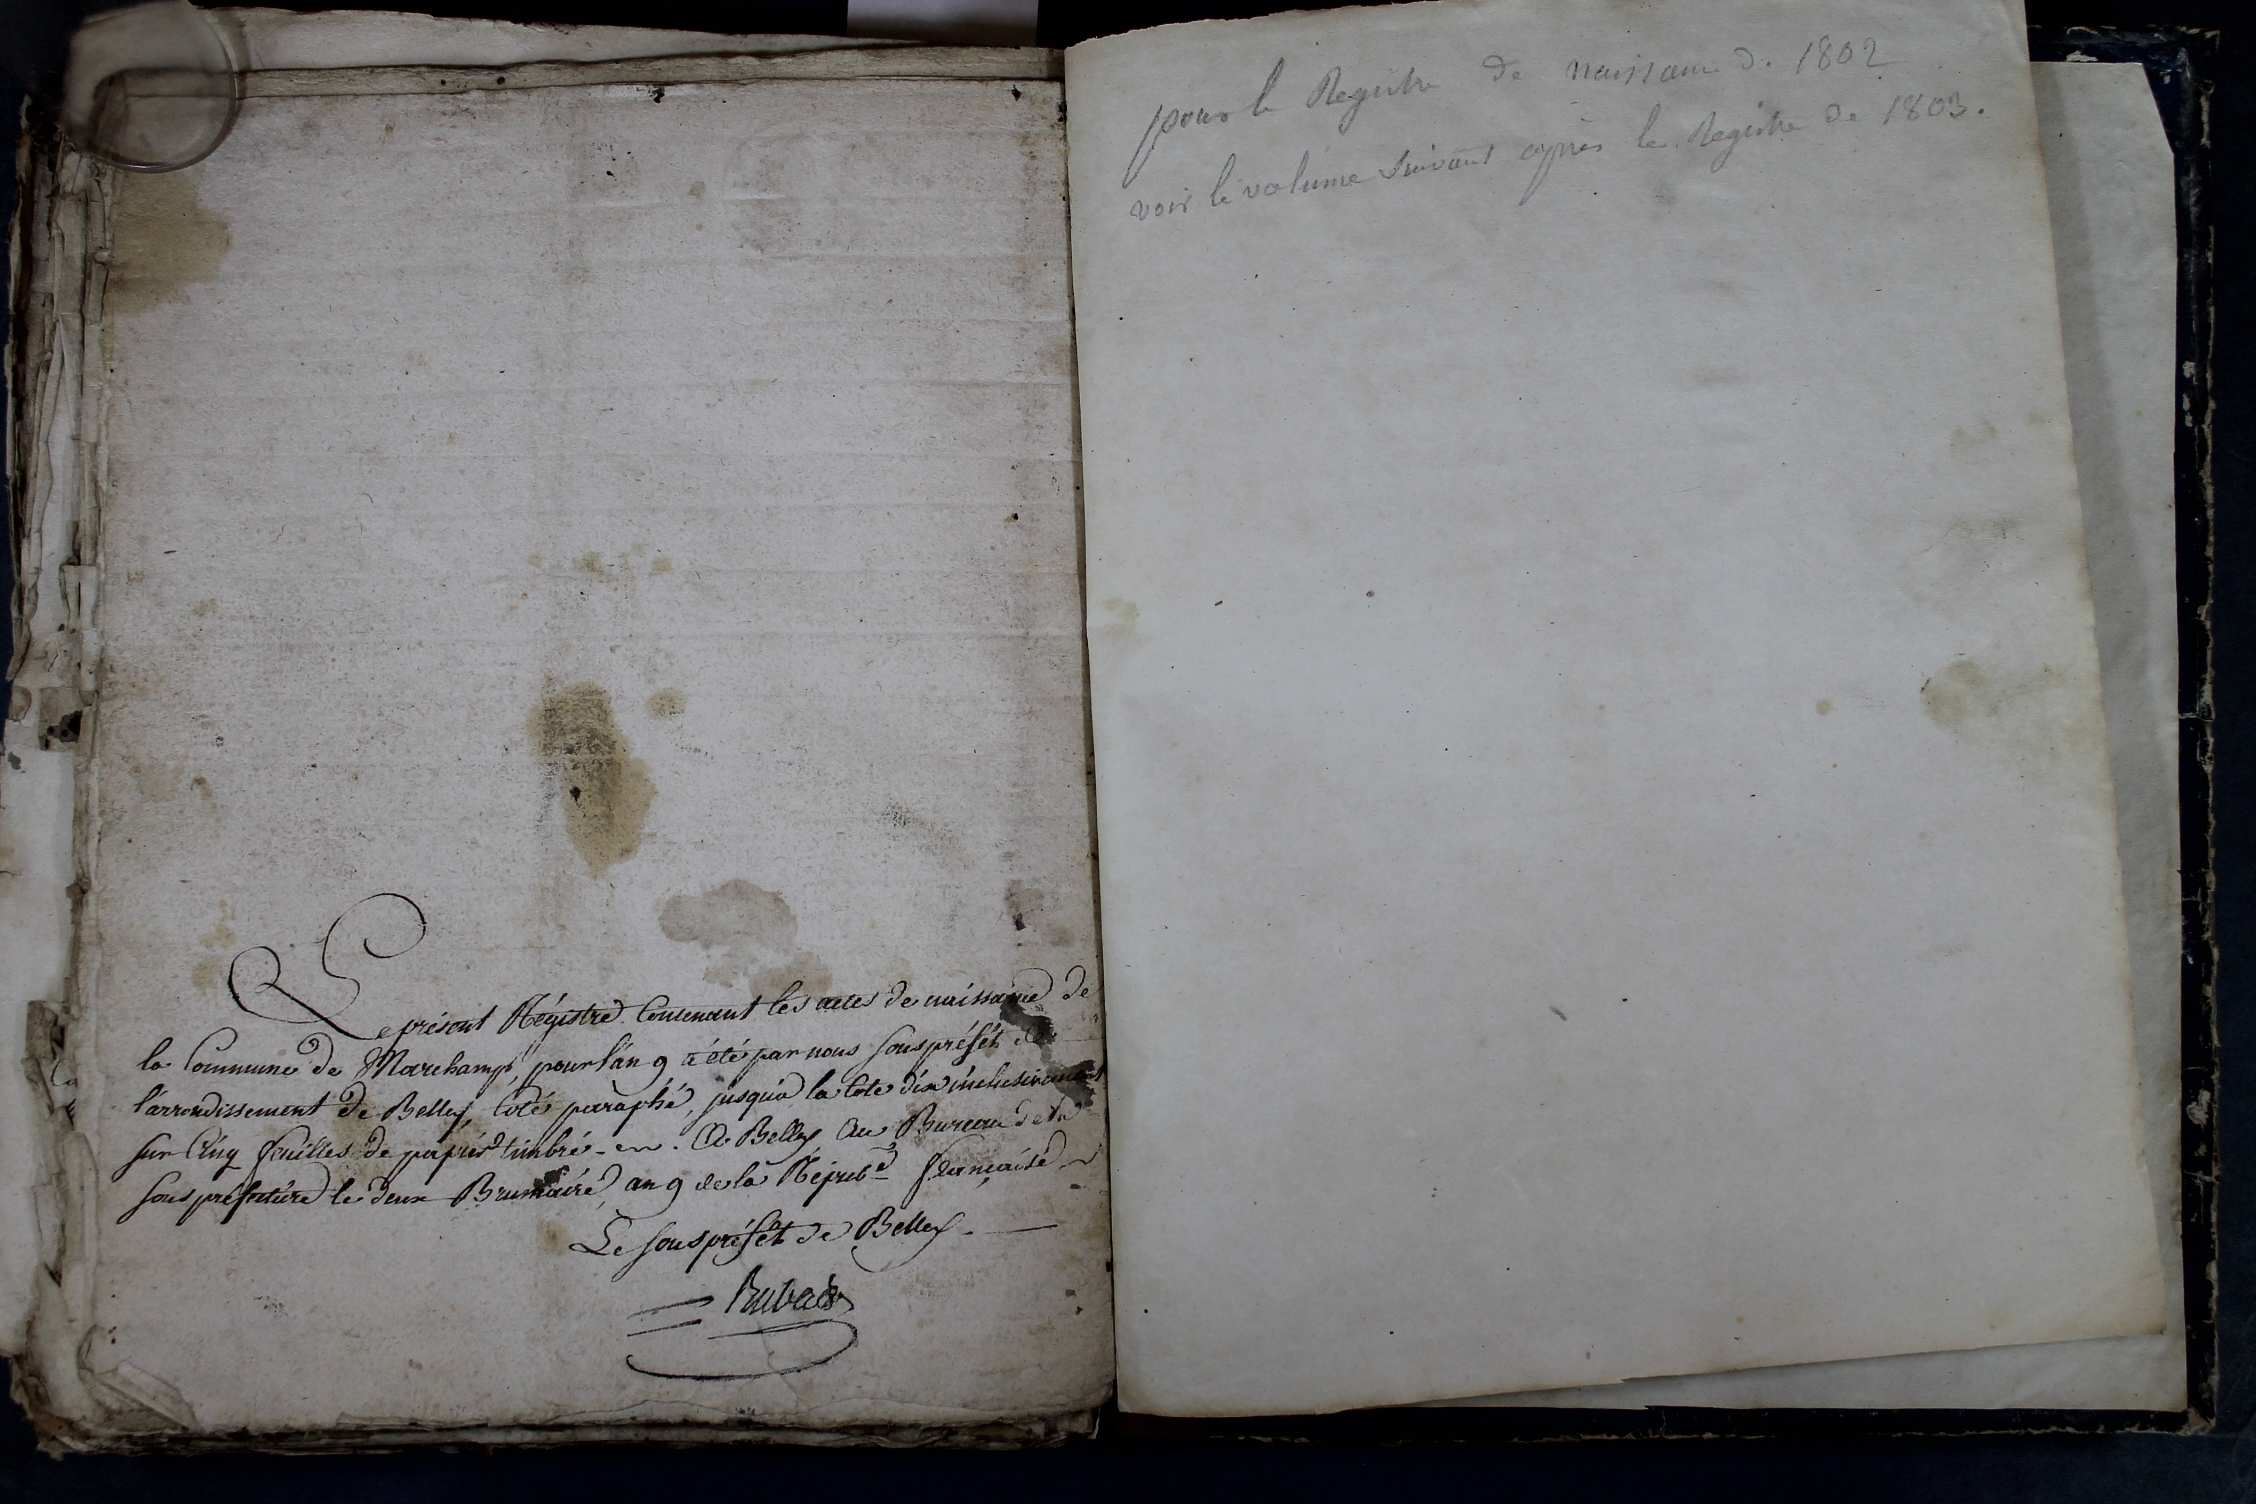 Le présent Régistre Contenant les actes de naissance de
la Commune de Marchamp, pour l'an 9 a été par nous souspréfét de
l'arrondissement de Belley, Coté paraphé, jusqu'a la Cote dix inclusivement
sur Cinq feuilles de papier timbré. A Belley Au Bureau de la
souspréfecture le deux Brumaire, an 9 de la Répub^e française
Le souspréfét de Belley.
Rubat
pour le Registre de naissance de 1802
voir le volume suivant après le Registre de 1803.